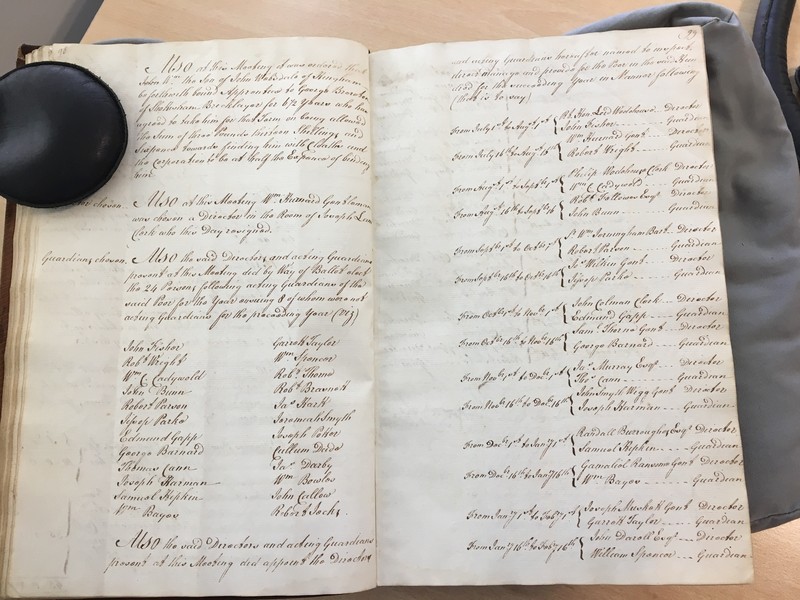 98
Also at this Meeting it was ordered that
John Wm. the Son of John Wells dale of Hingham
be forthwith bound Apprentice to George
of Shottesham Bricklayer for 6 1/2 Years who has
agreed to take him for that Term on being allowed
the Sum of three Pounds thirteen Shillings and
Sixpence towards finding him with Cloaths and
the Corporation to be at half the Expences of binding
him
chosen. Also at this Meeting Wm. Kinnard Gentleman
was chosen a Director in the Room of Joseph
Clerk who this Day resigned.
Guardians chosen. Also the said Directors and acting Guardians
present at this Meeting did by Way of Ballot elect
the 24 Persons following acting Guardians of the
said Poor for the Year ensuing 8 of whom were not
acting Guardians for the preceeding Year (Viz)
John Fisher
Robt. Wright
Wm. C Cadywold
John Bunn
Robert Parson
Jesse Parke
Edmund Gapp
George Barnard
Thomas Cann
Joseph Harman
Samuel Kipkin
Wm. Bayes
Garrett Taylor
Wm. Spencer
Robt. Thome
Robt. Brasnett
Jas. Hart
Jeremiah Smyth
Joseph Potter
Cullum Dordo
Jas. Darby
Wm. Bowles
John Callow
Robert Jacks.
Also the said Directors and acting Guardians
present at this Meeting did appoint the Directors
99
and acting Guardians hereafter named to inspect
direct manage and provide for the Poor in the said
for the succeeding Year in Manner following
(that is to say)
From July 1st to Augt. 1st Rt. Hon. Lord Wodehouse Director
John Fisher Guardian
From July 16th to Augt. 16th Wm. Kinnard Gent. Director
Robert Wright Guardian
From Augt. 1st to Septr. 1st Philip Wodehouse Clerk Director
Wm. C Cadywold Guardian
From Augt. 16th to Septr. 16 Robt. Fellowes Esqr. Director
John Bunn Guardian
From Septr. 1st to Octr. 1st Sr. Wm. Jerningham Bart. Director
Robert Parson Guardian
From Septr. 16th to Octr. 16th Jas. Wilkin Gent. Director
Jesse Parke Guardian
From Octr. 1st to Novr. 1st John Colman Clerk Director
Edmund Gapp Guardian
From Octr. 16th to Novr. 16th Saml. Thorne Gent. Director
George Barnard Guardian
From Novr. 1st to Decr. 1st Jas. Murray Esqr. Director
Thos. Cann Guardian
From Novr. 16th to Decr. 16th John Smyth Wegg Gent Director
Joseph Harman Guardian
From Decr. 1st to Jany. 1st Randall Burroughes Esqr. Director
Samuel Kipkin Guardian
From Decr. 16th to Jany. 16th Gamaliel Ransome Gent Director
Wm. Bayes Guardian
From Jany. 1st to Feby. 1st Joseph Muskett Gent Director
Garrett Taylor Guardian
From Jany. 16th to Feby. 16th John Darell Esqr. Director
William Spencer Guardian